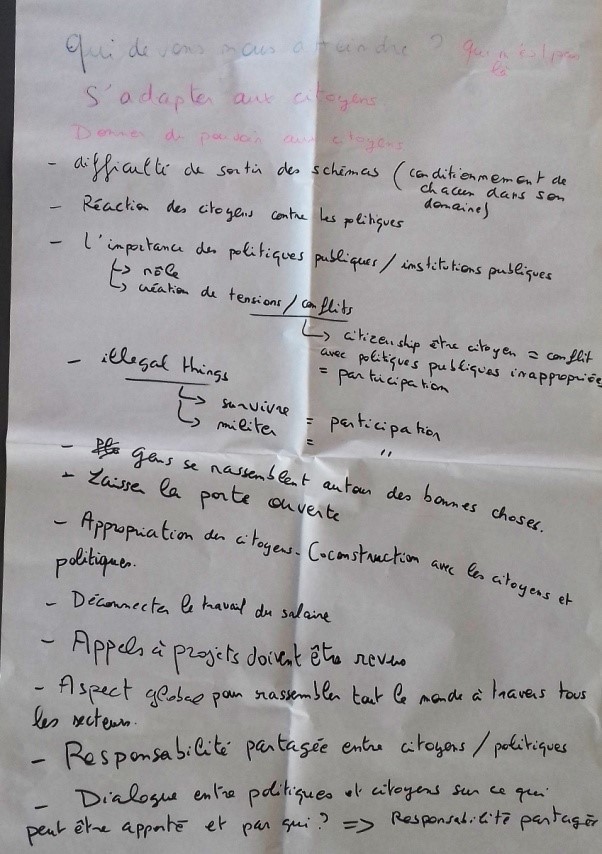 Qui devons nous atteindre ? Qui n'est pas
là
S'adapter aux citoyens
Donner du pouvoir aux citoyens
- difficulté de sortir des schémas (conditionnement de
chacun dans son
domaine)
- Réaction des citoyens contre les politiques
- L'importance des politiques publiques / institutions publiques
↳ rôle
↳ création de tensions / conflits
↳ citizenship être citoyen = conflit
avec politiques publiques inappropriées
= participation
- illegal things
↳ survivre = participation
↳ militer = "
- gens se rassemblent autour des bonnes choses.
- Laisser la porte ouverte
- Appropriation des citoyens. Coconstruction avec les citoyens et
politiques.
- Déconnecter le travail du salaire
- Appels à projets doivent être revus
- Aspect global pour rassembler tout le monde à travers tous
les secteurs.
- Responsabilité partagée entre citoyens / politiques
- Dialogue entre politiques et citoyens sur ce qui
peut être apporté et par qui ? => Responsabilité partagée